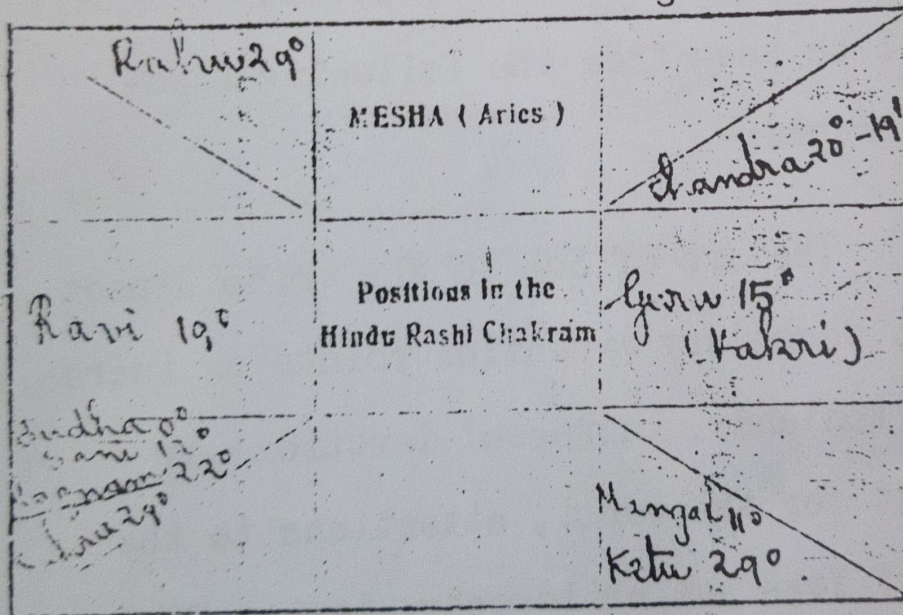 Rahu 29°
MESHA ( Aries )
Chandra 20° - 19'
Ravi 19°
Positions in the
Hindu Rashi Chakram
Guru 15°
( Vakri )
Budha 0°
Sani 12°
Lagnam 22°
29°
Mangal 11°
Ketu 29°